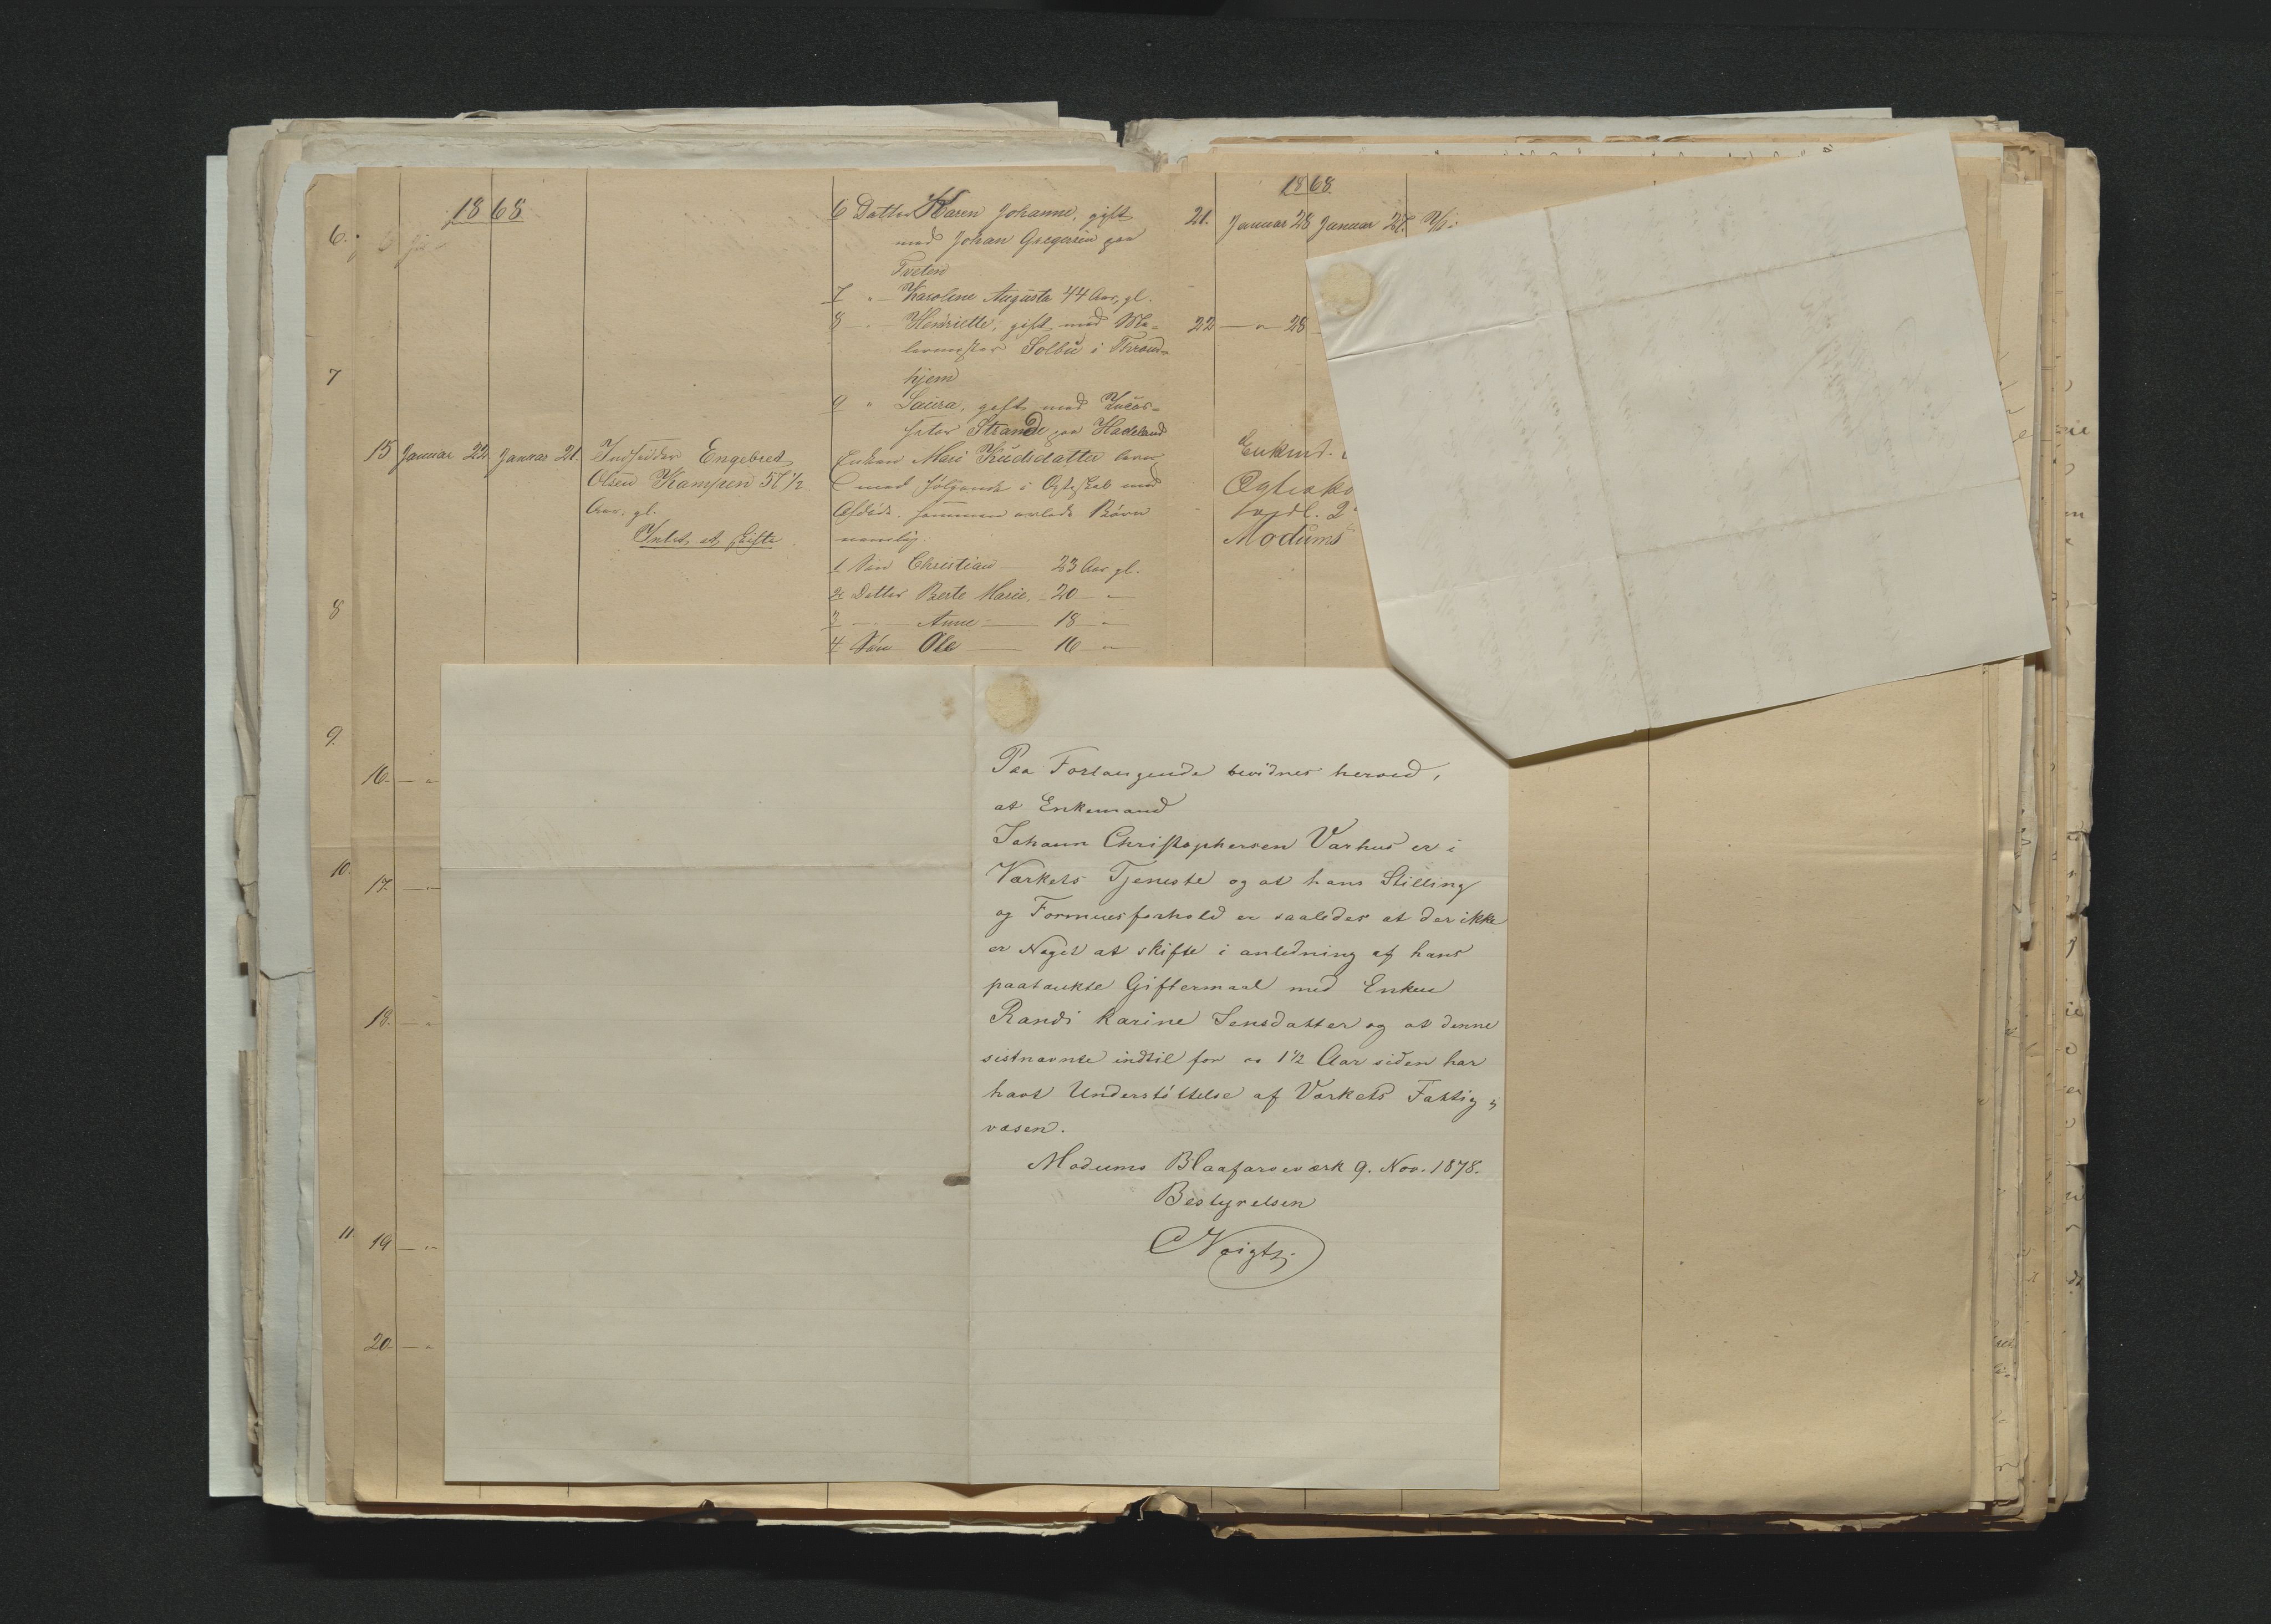 1868
6 Datter Karen Johanne, gift
med Johan Gregersen paa
Tveten
7 " — Karoline Augusta 44 Aar, gl.
8 — " — Henriette, gift med Ma-
lermester Solbu i Thrond-
hjem
9 " Laura, gift med
Strande paa Hadeland
15 Januar 22 Januar 21. Indsidder Engebret
Olsen Kampen 57 1/2
Aar. gl.
Intet at skifte
Enken Mari Knudsdatter
med følgende i Ægteskab med
Afdøde sammen avlede Børn
nemlig.
1 Søn Christian — 23 Aar gl.
2 Datter Berte Marie, — 20 — "
3 — " — Anne — 18 — "
4 Søn Ole — 16 — "
16. — "
17. — "
18. — "
19 — "
20 — "
6.
7
8
9.
10.
11.
1868
21. Januar 28 Januar 27.
22 — " — 28
Enkmd.
Ægtesko
Modums
Paa Forlangende bevidnes herved,
at Enkemand
Johann Christophersen Varhus er i
Værkets Tjeneste og at hans Stilling
og Formuesforhold er saaledes at der ikke
er Noget at skifte i anledning af hans
paatænkte Giftermaal med Enken
Randi Karine Jensdatter og at denne
sistnævnte indtil for ca 1 1/2 Aar siden har
havt Understøttelse af Værkets Fattig-
væsen.
Modums Blaafarveværk 9. Nov. 1878.
Bestyrelsen
C Voigt